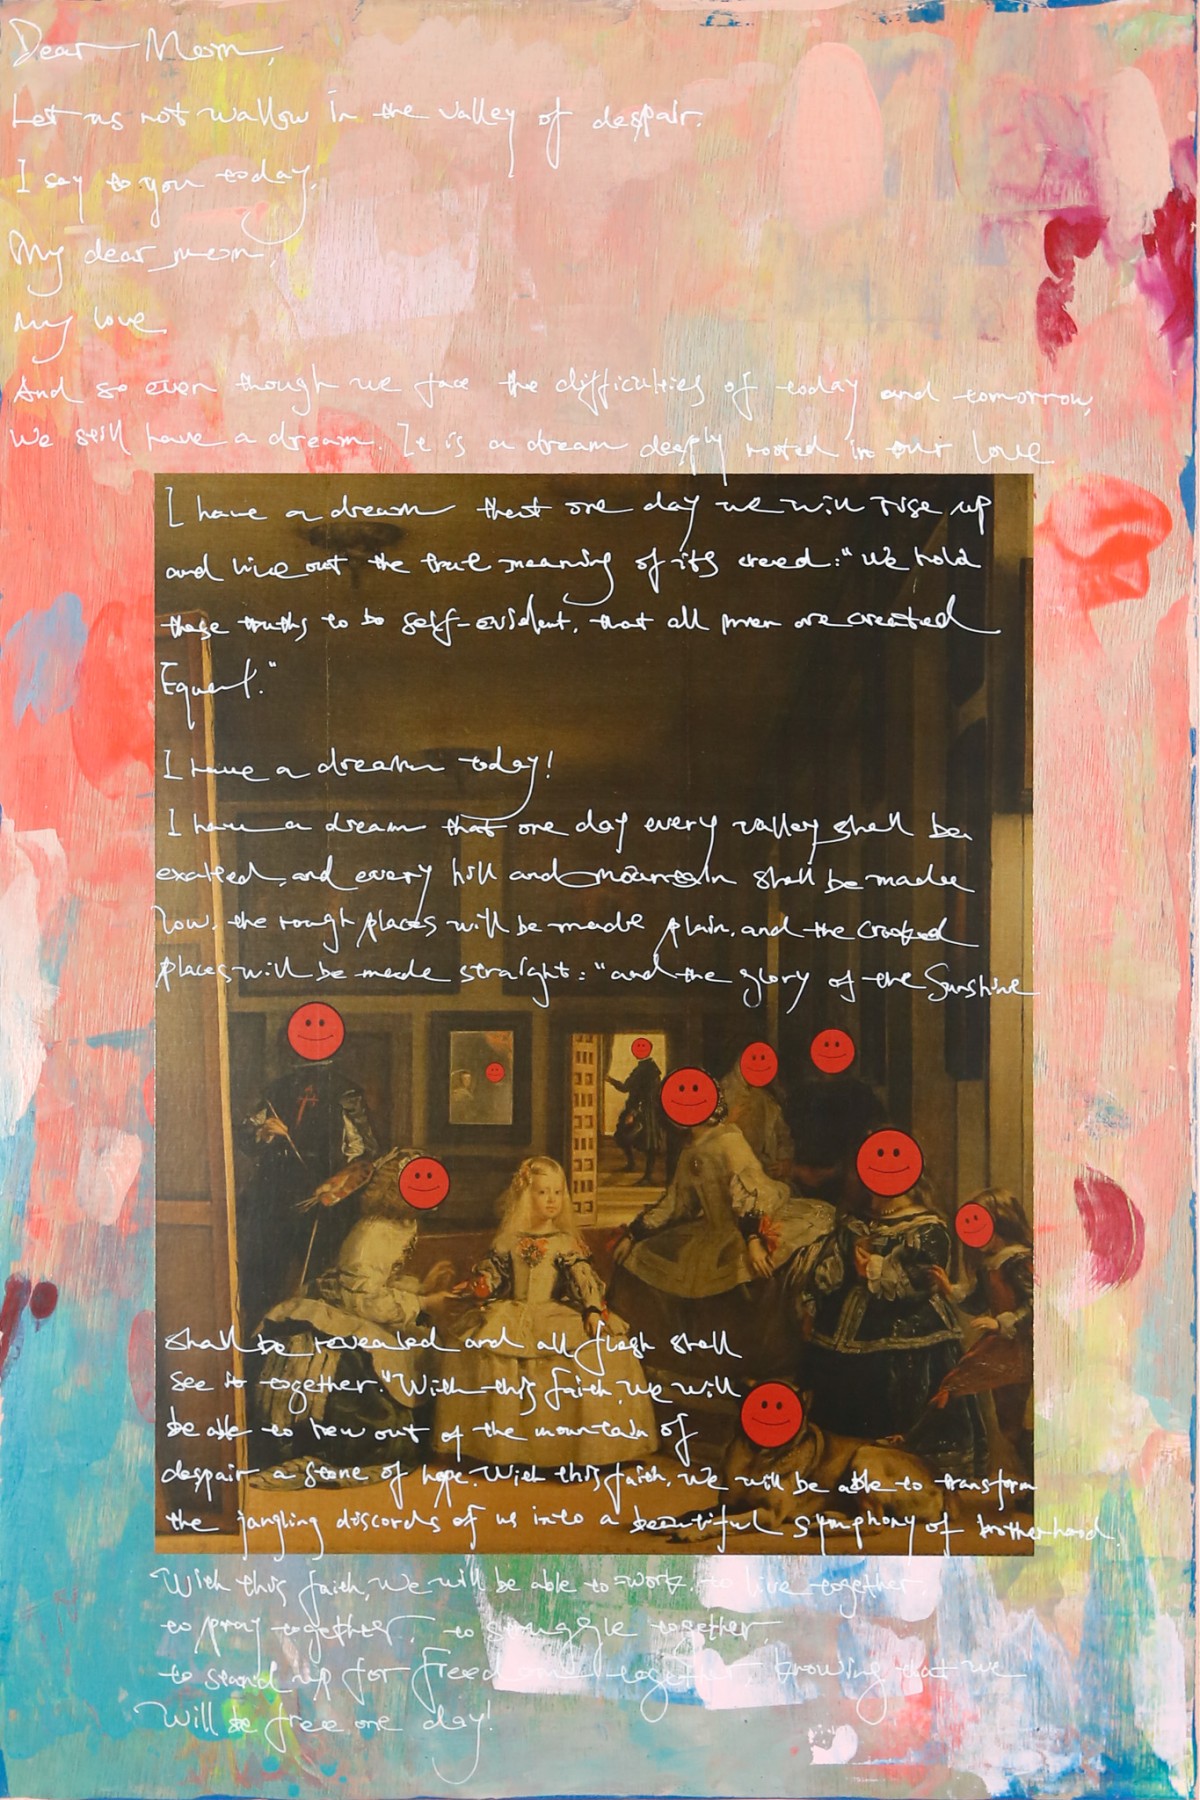 Dear Mom,
Let us not wallow in the valley of despair.
I say to you today,
My dear mom,
My love
And so even though we face the difficulties of today and tomorrow,
We still have a dream. It is a dream deeply rooted in our love
I have a dream that one day we will rise up
and live out the true meaning of its creed: "We hold
these truths to be self-evident, that all men are created
Equal."
I have a dream today!
I have a dream that one day every valley shall be
exalted, and every hill and mountain shall be made
low, the rough places will be made plain, and the crooked
places will be made straight: "and the glory of the Sunshine
shall be revealed and all flesh shall
see it together." With this faith, we will
be able to hew out of the mountain of
despair a stone of hope. With this faith, we will be able to transform
the jangling discords of us into a beautiful symphony of brotherhood.
With this faith, we will be able to work, to live together,
to pray together, to struggle together,
to stand up for freedom together, knowing that we
Will be free one day!